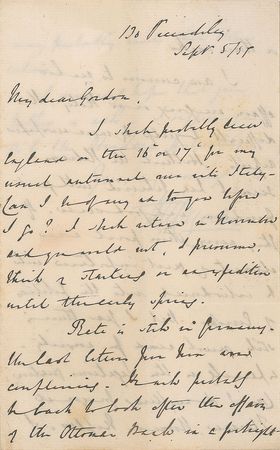 130 Piccadilly
Sept. 5/59
My dear Gordon.
I shall probably leave
England on the 16 or 17 for my
usual autumnal run into Italy -
Can I be of any use to you before
I go? I shall return in November
and you would not, I presume,
think of starting on an expedition
until the early spring.
is still in Germany.
The last letters from him were
He will probably
be back to look after the affairs
of the Ottoman Bank in a fortnight